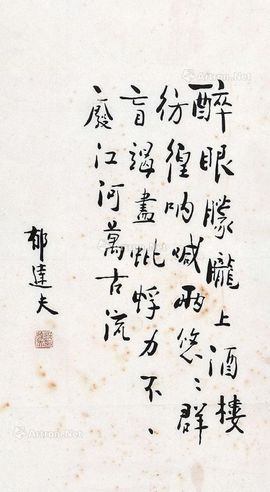 醉眼朦朧上酒樓
彷徨吶喊兩悠〻群
盲竭盡蚍蜉力不、
廢江河萬古流
郁達夫
Artron.Net